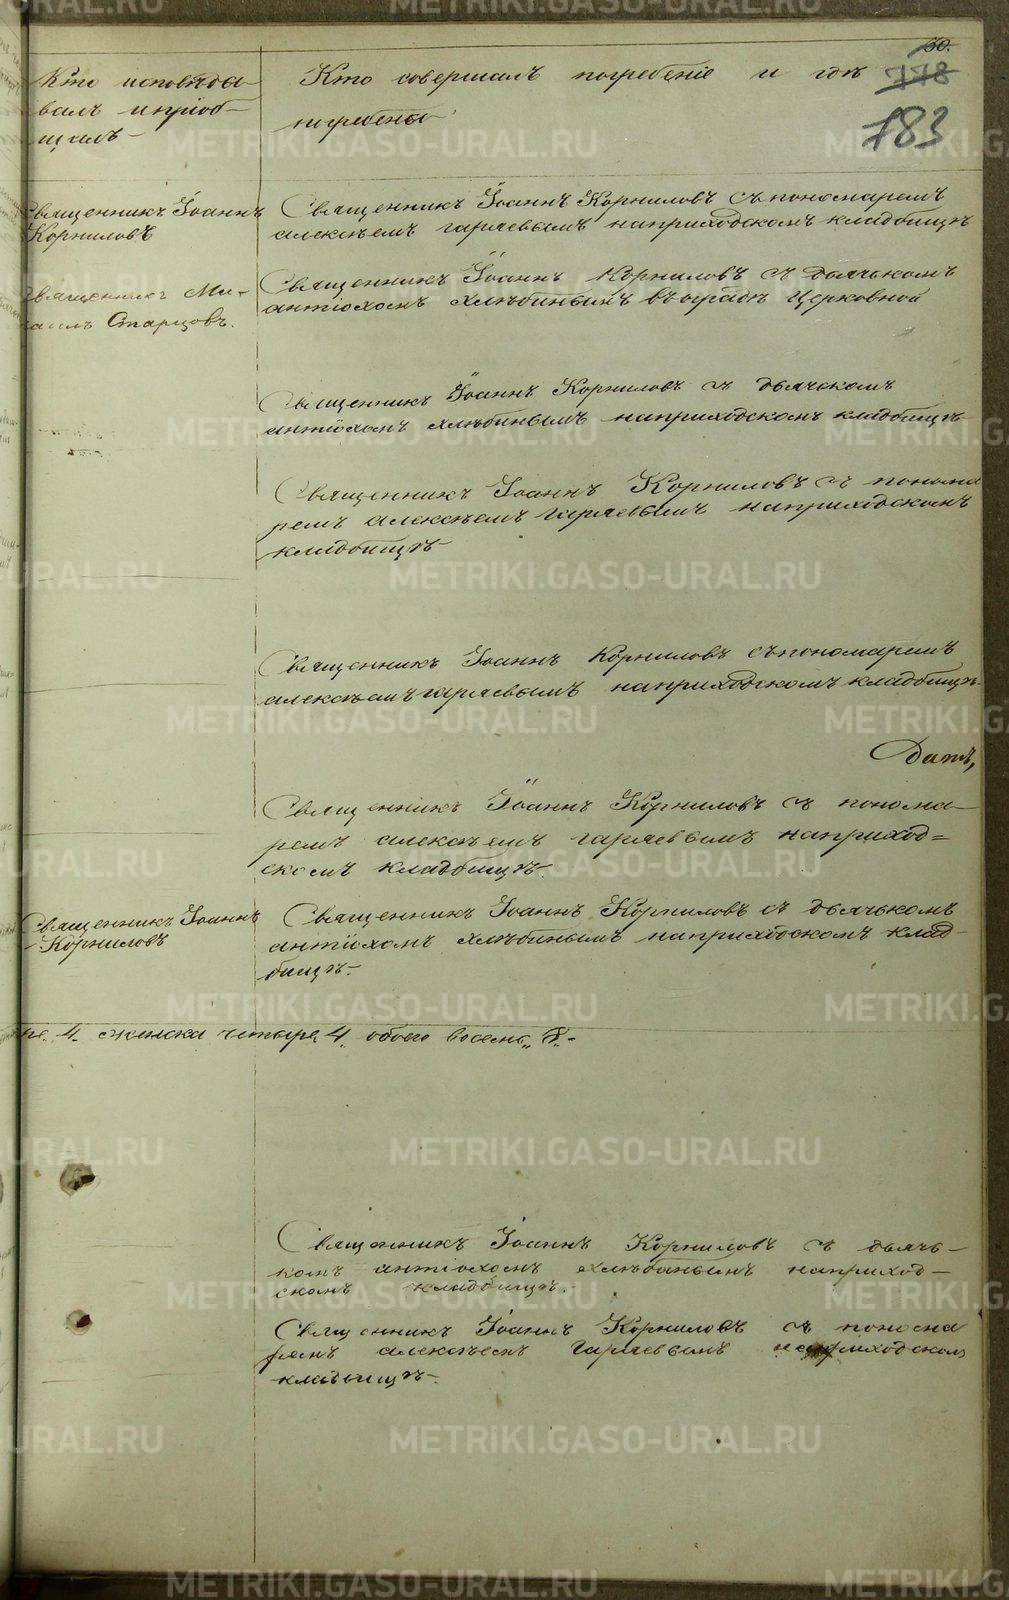 60.
778
183
Кто исповѣда-
валъ и пріоб-
щалъ
Кто совершалъ погребеніе и гдѣ
погребены
Священникъ Іоаннъ
Корниловъ
Священникъ Іоаннъ Корниловъ съ пономаремъ
алексѣемъ гаряевымъ наприходскомъ кладбищѣ
Священникъ Ми-
хаилъ Старцовъ.
Священникъ Іоаннъ Корниловъ съ дьячькомъ
антіохомъ хлѣбинымъ въ оградѣ Церковной
Священникъ Іоаннъ Корниловъ съ дьячкомъ
антіохомъ хлѣбинымъ наприходскомъ кладбищѣ
Священникъ Іоаннъ Корниловъ съ понома
ремъ алексѣемъ гаряевымъ наприходскомъ
кладбищѣ
Священникъ Іоаннъ Корниловъ съ пономаремъ
алексѣемъ гаряевымъ наприходскомъ кладбищѣ.
Священникъ Іоаннъ Корниловъ съ понома-
ремъ алексѣемъ гаряевымъ наприход=
скомъ кладбищѣ.
Священникъ Іоаннъ
Корниловъ
Священникъ Іоаннъ Корниловъ съ дьячькомъ
антіохомъ хлѣбинымъ наприходскомъ клад-
бищѣ.
ре. 4. женска четыре 4. обоего восемь „8.
Священникъ Іоаннъ Корниловъ съ дьячь-
комъ антіохомъ хлѣбинымъ наприход-
скомъ кладбищѣ.
Священникъ Іоаннъ Корниловъ съ понома
ремъ алексѣемъ Гаряевымъ наприходскомъ
кладбищѣ.
METRIKI.GASO-URAL.RU